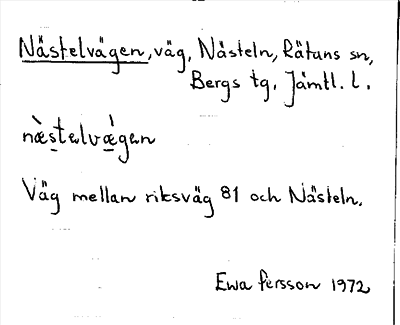 Nästelvägen, väg, Nästeln, Rätans sn,
Bergs tg. Jämtl. l.
næ̀stelvæ̀gen
Väg mellan riksväg 81 och Nästeln.
Ewa Persson 1972